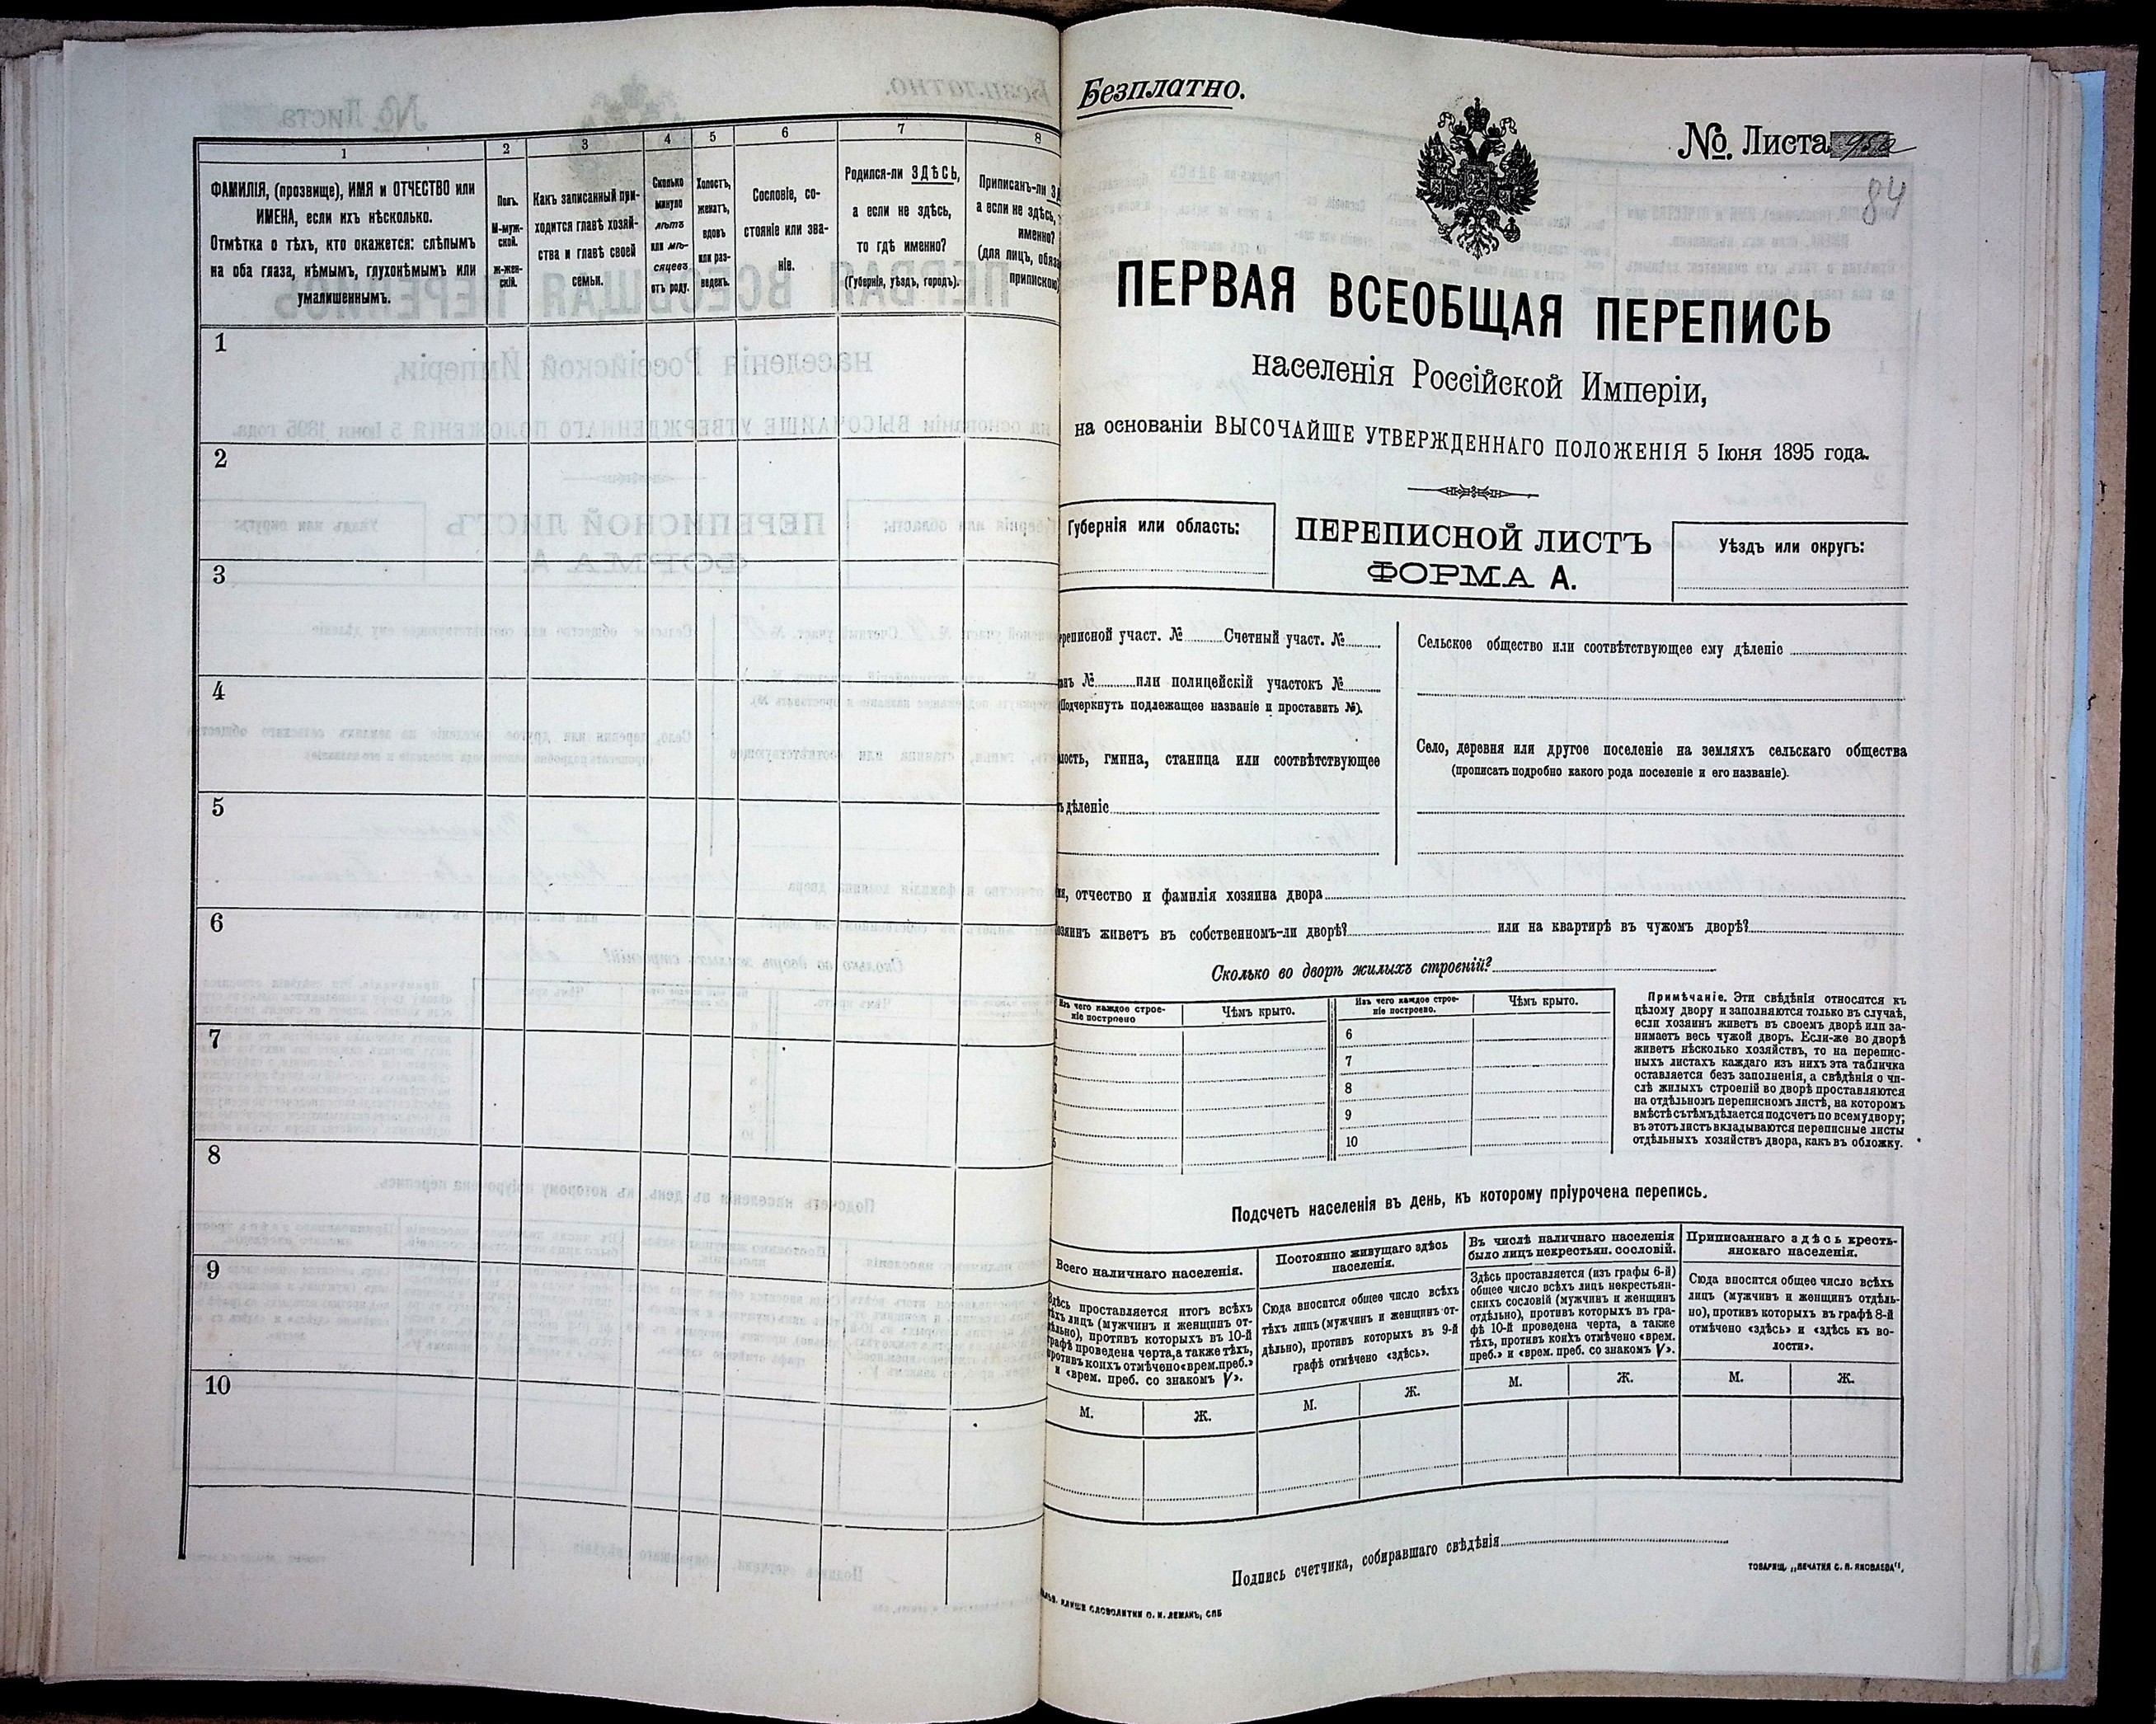 1
2
3
4
5
6
7
8
ФАМИЛІЯ, (прозвище), ИМЯ и ОТЧЕСТВО или
ИМЕНА, если ихъ нѣсколько.
Отмѣтка о тѣхъ, кто окажется: слѣпымъ
на оба глаза, нѣмымъ, глухонѣмымъ или
умалишеннымъ.
Полъ.
М-муж-
ской.
ж-жен-
скій.
Какъ записанный при-
ходится главѣ хозяй-
ства и главѣ своей
семьи.
Сколько
минуло
лѣтъ
или мѣ-
сяцевъ
отъ роду.
Холостъ,
женатъ,
вдовъ
или раз-
веденъ.
Сословіе, со-
стояніе или зва-
ніе.
Родился-ли ЗДѢСЬ,
а если не здѣсь,
то гдѣ именно?
(Губернія, уѣздъ, городъ).
Приписанъ-ли
а если не здѣсь,
именно?
(для лицъ,
припискою
1
2
3
4
5
6
7
8
9
10
Безплатно.
№. Листа
84
ПЕРВАЯ ВСЕОБЩАЯ ПЕРЕПИСЬ
населенія Россійской Имперіи,
на основаніи ВЫСОЧАЙШЕ УТВЕРЖДЕННАГО ПОЛОЖЕНІЯ 5 Іюня 1895 года.
Губернія или область:
ПЕРЕПИСНОЙ ЛИСТЪ
ФОРМА А.
Уѣздъ или округъ:
реписной участ. № Счетный участ. №
нъ № или полицейскій участокъ №
(Подчеркнуть подлежащее названіе и проставить №).
лость, гмина, станица или соотвѣтствующее
дѣленіе
Сельское общество или соотвѣтствующее ему дѣленіе
Село, деревня или другое поселеніе на земляхъ сельскаго общества
(прописать подробно какого рода поселеніе и его названіе).
я, отчество и фамилія хозяина двора
озяинъ живетъ въ собственномъ-ли дворѣ? или на квартирѣ въ чужомъ дворѣ?
Сколько во дворѣ жилыхъ строеній?
Изъ чего каждое строе-
ніе построено
Чѣмъ крыто.
Изъ чего каждое строе-
ніе построено.
Чѣмъ крыто.
6
7
8
9
10
Примѣчаніе. Эти свѣдѣнія относятся къ
цѣлому двору и заполняются только въ случаѣ,
если хозяинъ живетъ въ своемъ дворѣ или за-
нимаетъ весь чужой дворъ. Если-же во дворѣ
живетъ нѣсколько хозяйствъ, то на перепис-
ныхъ листахъ каждаго изъ нихъ эта табличка
оставляется безъ заполненія, а свѣдѣнія о чи-
слѣ жилыхъ строеній во дворѣ проставляются
на отдѣльномъ переписномъ листѣ, на которомъ
вмѣстѣ съ тѣмъ дѣлается подсчетъ по всему двору;
въ этотъ листъ вкладываются переписные листы
отдѣльныхъ хозяйствъ двора, какъ въ обложку.
Подсчетъ населенія въ день, къ которому пріурочена перепись.
Всего наличнаго населенія.
Здѣсь проставляется итогъ всѣхъ
тѣхъ лицъ (мужчин и женщинъ от-
дѣльно), противъ которыхъ въ 10-й
графѣ проведена черта, а также тѣхъ,
противъ коихъ отмѣчено «врем. преб.»
и «врем. преб. со знакомъ V».
М.
Ж.
Постоянно живущаго здѣсь
населенія.
Сюда вносится общее число всѣхъ
тѣхъ лицъ (мужчин и женщинъ от-
дѣльно), противъ которыхъ въ 9-й
графѣ отмѣчено «здѣсь».
М.
Ж.
Въ числѣ наличнаго населенія
было лицъ некрестьян. сословій.
Здѣсь проставляется (изъ графы 6-й)
общее число всѣхъ лицъ некрестьян-
скихъ сословій (мужчин и женщинъ
отдѣльно), противъ которыхъ въ гра-
фѣ 10-й проведена черта, а также
тѣхъ, противъ коихъ отмѣчено «врем.
преб.» и «врем. преб. со знакомъ V».
М.
Ж.
Приписаннаго здѣсь кресть-
янскаго населенія.
Сюда вносится общее число всѣхъ
лицъ (мужчин и женщинъ отдѣль-
но), противъ которыхъ въ графѣ 8-й
отмѣчено «здѣсь» и «здѣсь къ во-
лости».
М.
Ж.
Подпись счетчика, собиравшаго свѣдѣнія
КЛИШЕ СЛОВОЛИТНИ О. И. ЛЕМАНЪ, СПБ
ТОВАРИЩ. „ПЕЧАТНЯ С. П. ЯКОВЛЕВА“.